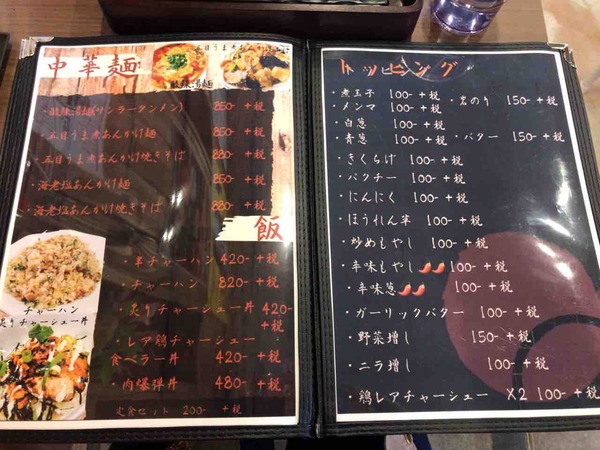 中華麺
五目うま煮あんかけ
酸辣湯麺
・酸辣湯麺(サンラータンメン) 850-+税
・五目うま煮あんかけ麺 850-+税
・五目うま煮あんかけ焼きそば 880-+税
・海老塩あんかけ麺 850-+税
・海老塩あんかけ焼きそば 880-+税
飯
・半チャーハン 420-+税
・チャーハン 820-+税
・炙りチャーシュー丼 420-
+税
・レア鶏チャーシュー
食べラー丼 420-+税
・肉爆弾丼 480-+税
定食セット 200- +税
チャーハン
炙りチャーシュー丼
トッピング
・煮玉子 100-+税 ・岩のり 150-+税
・メンマ 100-+税
・白葱 100-+税
・青葱 100-+税 ・バター 150-+税
・きくらげ 100-+税
・パクチー 100-+税
・にんにく 100-+税
・ほうれん草 100-+税
・炒めもやし 100-+税
・辛味もやし 100-+税
・辛味葱 100-+税
・ガーリックバター 100-+税
・野菜増し 150-+税
・ニラ増し 100-+税
・鶏レアチャーシュー X2 100-+税